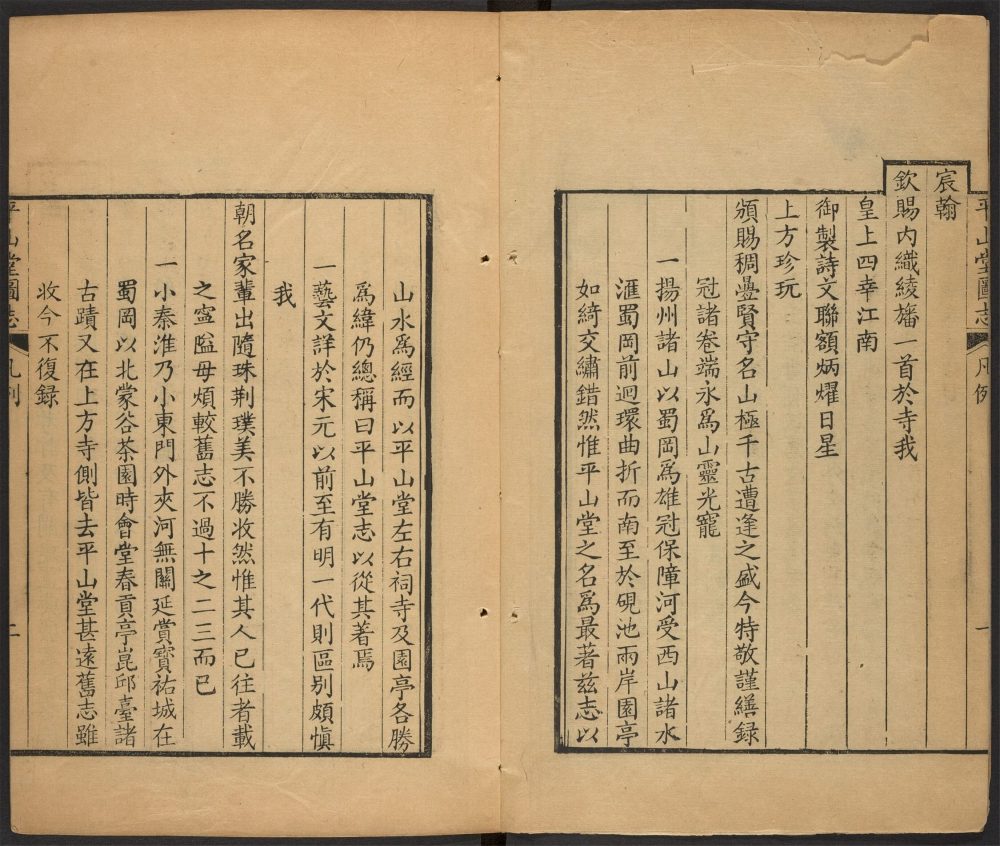 平山堂圖志 凡例 一
宸翰
欽賜内織綾旛一首於寺我
皇上四幸江南
御製詩文聯額炳燿日星
上方珍玩
頒賜稠疊賢守名山極千古遭逢之盛今特敬謹繕録
冠諸卷端永爲山靈光寵
一揚州諸山以蜀岡爲雄冠保障河受西山諸水
滙蜀岡前迴環曲折而南至於硯池兩岸園亭
如綺交繡錯然惟平山堂之名爲最著兹志以
山水爲經而以平山堂左右祠寺及園亭各勝
爲緯仍總稱曰平山堂志以從其著焉
一藝文詳於宋元以前至有明一代則區别頗慎
我
朝名家輩出隨珠荆璞美不勝收然惟其人已往者載
之寧隘毋煩較舊志不過十之二三而已
一小秦淮乃小東門外夾河無關延賞寳祐城在
蜀岡以北蒙谷茶園時會堂春貢亭崑邱臺諸
古蹟又在上方寺側皆去平山堂甚遠舊志雖
收今不復録
平山堂圖志 凡例 二